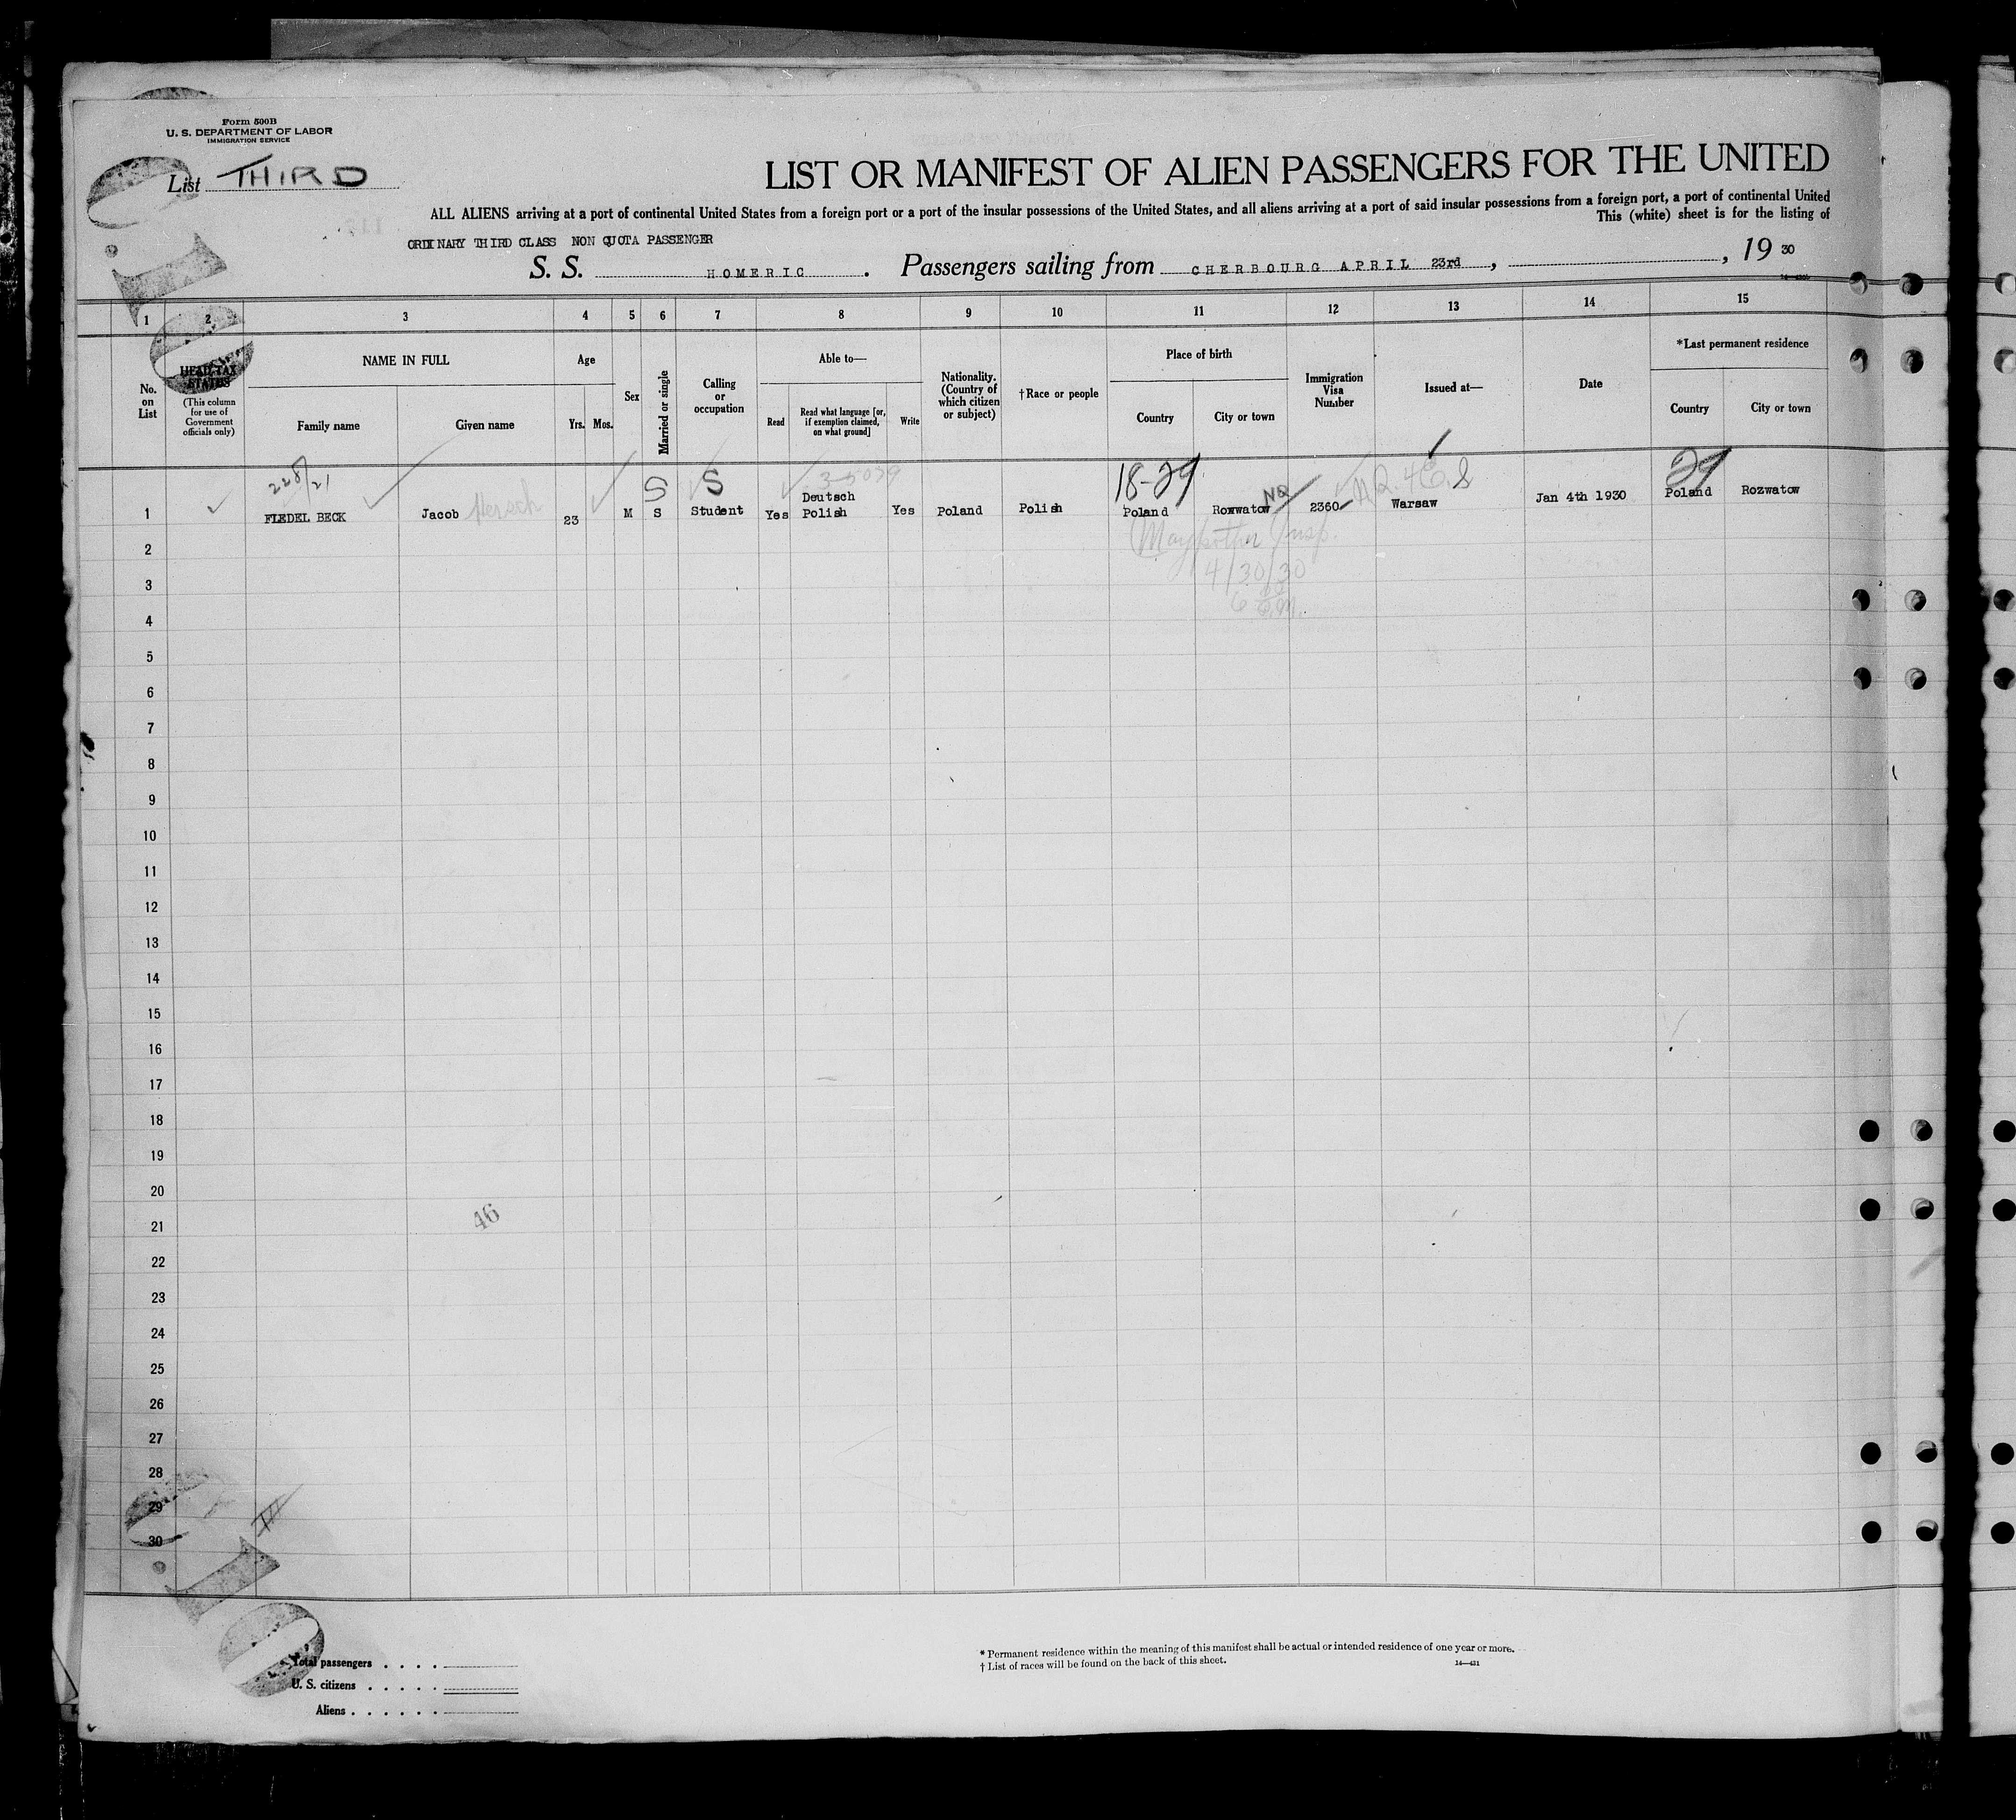 Form 500B
U. S. DEPARTMENT OF LABOR
IMMIGRATION SERVICE
List THIRD
LIST OR MANIFEST OF ALIEN PASSENGERS FOR THE UNITED
ALL ALIENS arriving at a port of continental United States from a foreign port or a port of the insular possessions of the United States, and all aliens arriving at a port of said insular possessions from a foreign port, a port of continental United
This (white) sheet is for the listing of
ORDINARY THIRD CLASS NON QUOTA PASSENGER
S. S. HOMERIC. Passengers sailing from CHERBOURG APRIL 23rd, , 19 30
1 2 3 4 5 6 7 8 9 10 11 12 13 14 15
No. on List
HEAD-TAX STATUS
(This column for use of Government officials only)
NAME IN FULL
Family name
Given name
Age
Yrs. Mos.
Sex
Married or single
Calling or occupation
Able to—
Read
Read what language [or, if exemption claimed, on what ground]
Write
Nationality. (Country of which citizen or subject)
†Race or people
Place of birth
Country
City or town
Immigration Visa Number
Issued at—
Date
*Last permanent residence
Country
City or town
228/21 S S 3-5079 18-29 NQ 29
1 FIEDEL BECK Jacob Hersch 23 M S Student Yes Deutsch Polish Yes Poland Polish Poland Rozwatow 2360 Warsaw Jan 4th 1930 Poland Rozwatow
Insp.
2
4/30/30
3
4
5
6
7
8
9
10
11
12
13
14
15
16
17
18
19
20
46
21
22
23
24
25
26
27
28
29
30
Total passengers . . . .
U. S. citizens . . . . .
Aliens . . . . . .
* Permanent residence within the meaning of this manifest shall be actual or intended residence of one year or more.
† List of races will be found on the back of this sheet.
14—431